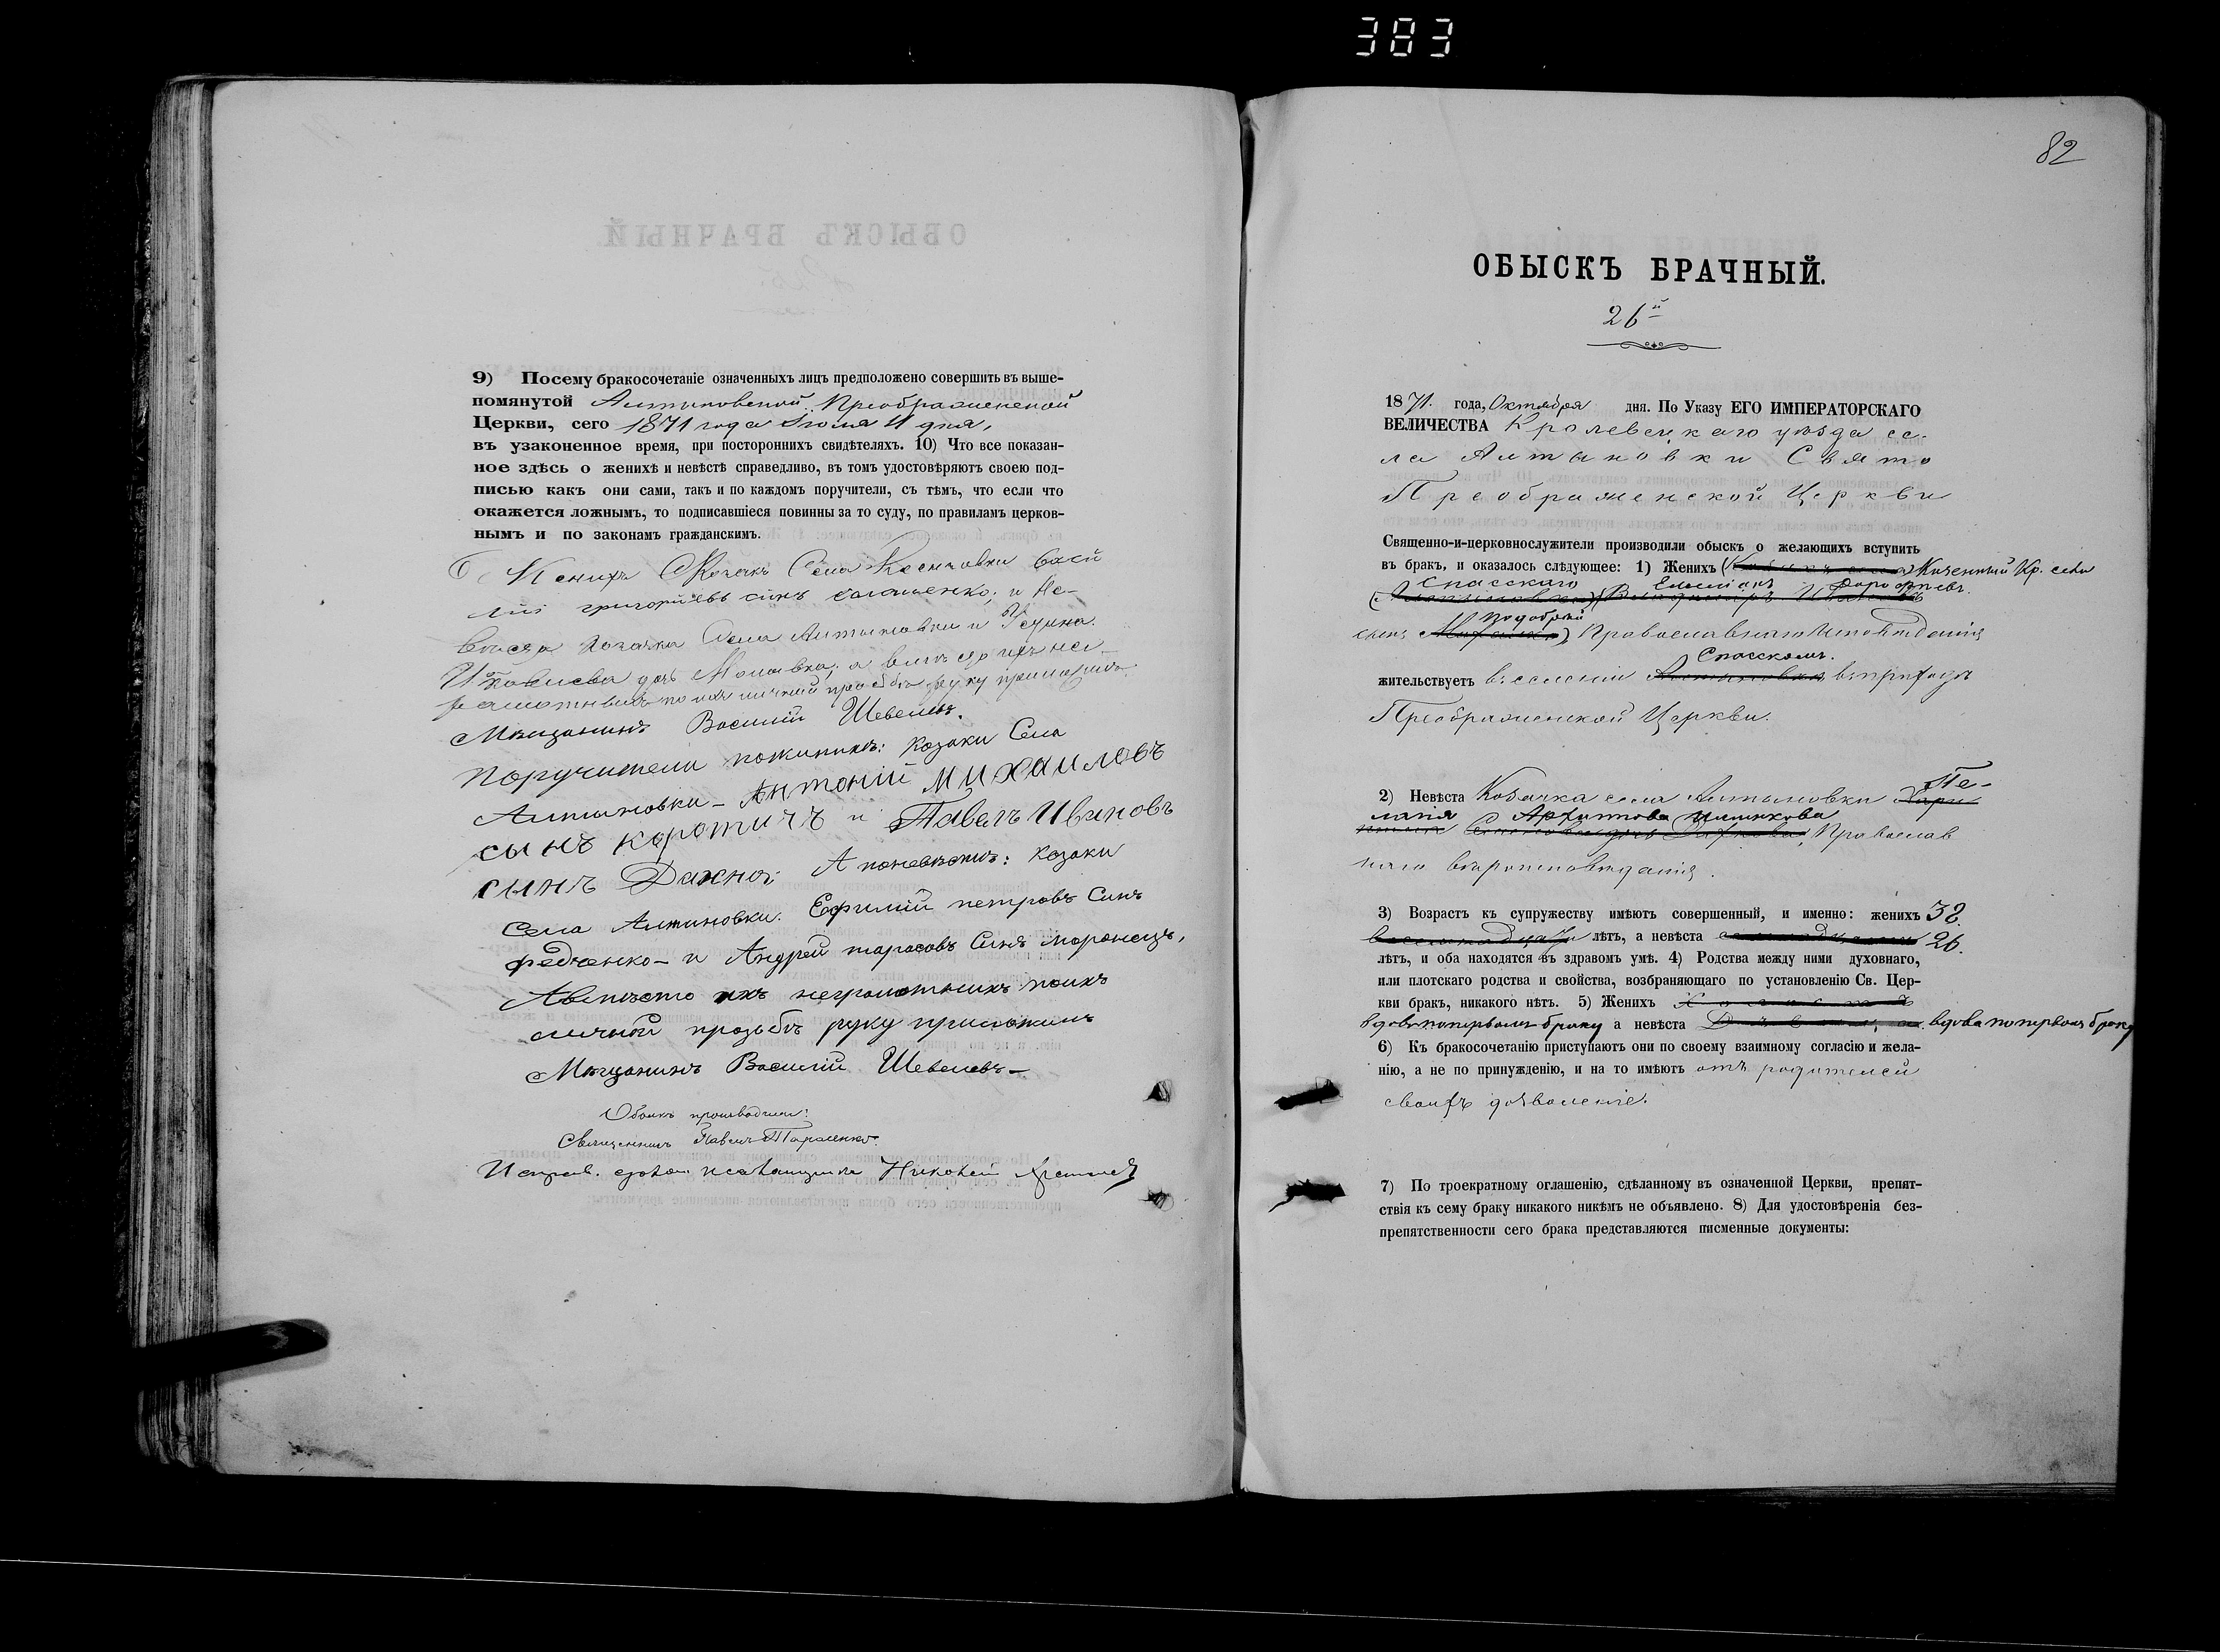 383
9) Посему бракосочетаніе означенныхъ лицъ предположено совершить въ выше-
помянутой Алтыновской Преображенской
Церкви, сего 1871 года Іюля 11 дня,
въ узаконенное время, при постороннихъ свидѣтеляхъ. 10) Что все показан-
ное здѣсь о женихѣ и невѣстѣ справедливо, въ томъ удостовѣряютъ своею под-
писью какъ они сами, такъ и по каждомъ поручители, съ тѣмъ, что если что
окажется ложнымъ, то подписавшіеся повинны за то суду, по правиламъ церков-
нымъ и по законамъ гражданскимъ.
Женихъ Козакъ Села Васи
лій григоріевъ синъ и Не-
вѣста Козачка Села Алтыновки
дочь а вмѣсто ихъ не
грамотныхъ по ихъ личной прозьбѣ руку приложилъ
Мѣщанинъ Василій Шевелевъ.
Поручители пожинихъ: Козаки Села
Алтиновки – Антоній Михаиловъ
сынъ Коротичъ и Павелъ Ивановъ
сынъ Дахно; А поневѣстѣ: Козаки
Села Алтиновки. Ефимій петровъ Синъ
Федченко – и Андрѣй тарасовъ Синъ
Авмѣсто ихъ неграмотнихъ поихъ
личной прозьбѣ руку приложилъ
Мѣщанинъ Василій Шевелевъ –
Обыскъ производили:
Священникъ Павелъ Тарасенко
Исправ. долж. псаломщика Николай
82
ОБЫСКЪ БРАЧНЫЙ.
26й
1871 года, Октября дня. По Указу ЕГО ИМПЕРАТОРСКАГО
ВЕЛИЧЕСТВА Кролевецкаго уѣзда се-
ла Алтыновки Свято
Преображенской Церкви
Священно-и-церковнослужители производили обыскъ о желающихъ вступить
въ бракъ, и оказалось слѣдующее: 1) Женихъ Казенный Кр. села
Спасскаго Емеліанъ Дорофѣевъ
сынъ Подобрій Православнаго Исповѣданія
жительствуетъ въ селеніи Спасскомъ. въ приходѣ
Преображенской Церкви.
2) Невѣста Козачка села Алтыновки Пе-
лагія Архиппова Ильинкова Православ
наго вѣроисповѣданія.
3) Возрастъ къ супружеству имѣютъ совершенный, и именно: женихъ 38.
лѣтъ, а невѣста 26.
лѣтъ, и оба находятся въ здравомъ умѣ. 4) Родства между ними духовнаго,
или плотскаго родства и свойства, возбраняющаго по установленію Св. Цер-
кви бракъ, никакого нѣтъ. 5) Женихъ
вдовъ попервомъ браку а невѣста вдова попервом браку
6) Къ бракосочетанію приступаютъ они по своему взаимному согласію и жела-
нію, а не по принужденію, и на то имѣютъ отъ родителей
своихъ дозволеніе.
7) По троекратному оглашенію, сдѣланному въ означенной Церкви, препят-
ствія къ сему браку никакого никѣмъ не объявлено. 8) Для удостовѣренія без-
препятственности сего брака представляются писменные документы: